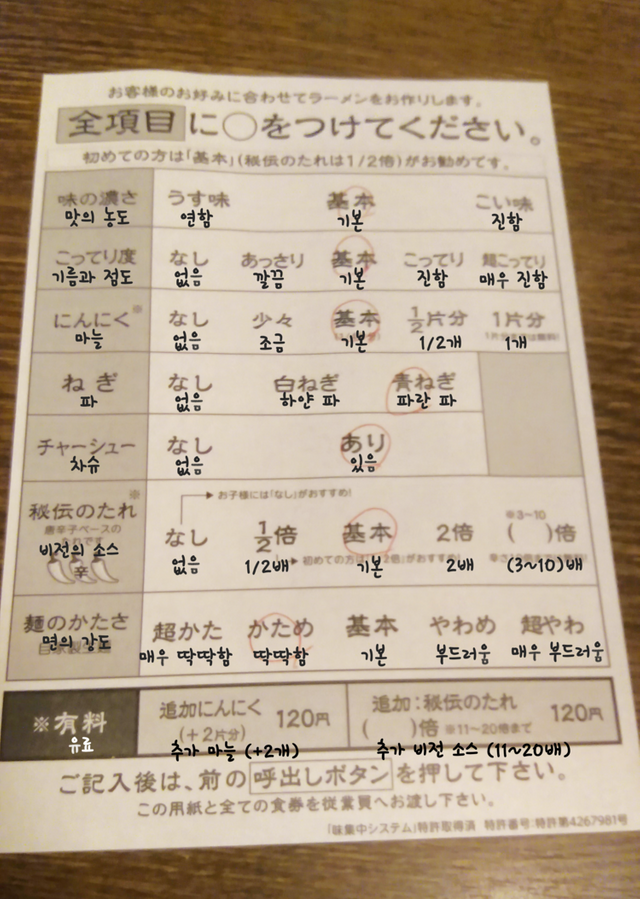 お客様のお好みに合わせてラーメンをお作りします。
全項目に○をつけてください。
初めての方は「基本」(秘伝のたれは1/2倍)がお勧めです。
味の濃さ うす味 基本 こい味
맛의 농도 연함 기본 진함
こってり度 なし あっさり 基本 こってり 超こってり
기름과 점도 없음 깔끔 기본 진함 매우 진함
にんにく※ なし 少々 基本 1/2片分 1片分
마늘 없음 조금 기본 1/2개 1개
ねぎ なし 白ねぎ 青ねぎ
파 없음 하얀 파 파란 파
チャーシュー なし あり
차슈 없음 있음
※
お子様には「なし」がおすすめ!
秘伝のたれ なし 1/2倍 基本 2倍 ※3~10 ( )倍
唐辛子ベースの
初めての方は
비전의 소스 없음 1/2배 기본 2배 (3~10)배
辛
麺のかたさ 超かた かため 基本 やわめ 超やわ
면의 강도 매우 딱딱함 딱딱함 기본 부드러움 매우 부드러움
※有料 追加にんにく (+2片分) 120円 追加:秘伝のたれ ( )倍 ※11~20倍まで 120円
유료 추가 마늘 (+2개) 추가 비전 소스 (11~20배)
ご記入後は、前の呼出しボタンを押して下さい。
この用紙と全ての食券を従業員へお渡し下さい。
「味集中システム」特許取得済 特許番号:特許第4267981号